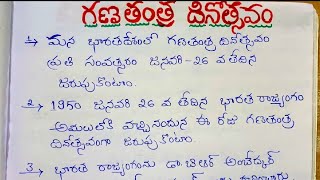 గణతంత్ర దినోత్సవం
1. మన భారతదేశంలో గణతంత్ర దినోత్సవం
ప్రతి సంవత్సరం జనవరి-26 వ తేదిన
జరుపుకుంటాం.
2. 1950 జనవరి 26 వ తేదిన భారత రాజ్యాంగం
అమలులోకి వచ్చినందున ఈ రోజు గణతంత్ర
దినోత్సవంగా జరుపుకుంటాం.
3. భారత రాజ్యాంగంను డా. బి.ఆర్ అంబేద్కర్